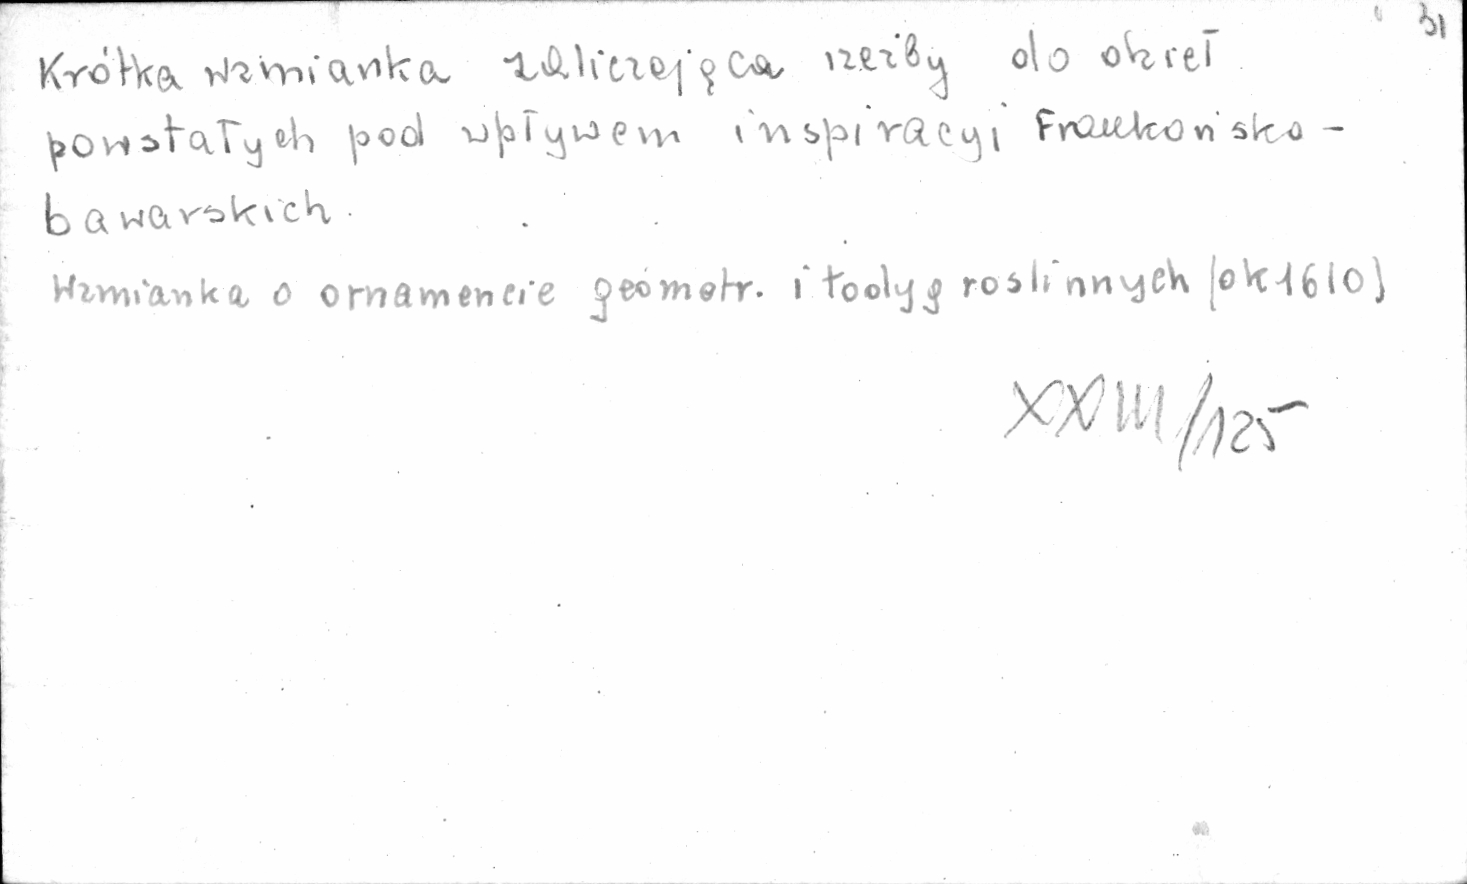 31
Krótka wzmianka zaliczająca rzeźby do dzieł
powstałych pod wpływem inspiracyi Frankońsko-
bawarskich.
Wzmianka o ornamencie geometr. i łodyg roslinnych (ok 1610)
XXIII/125